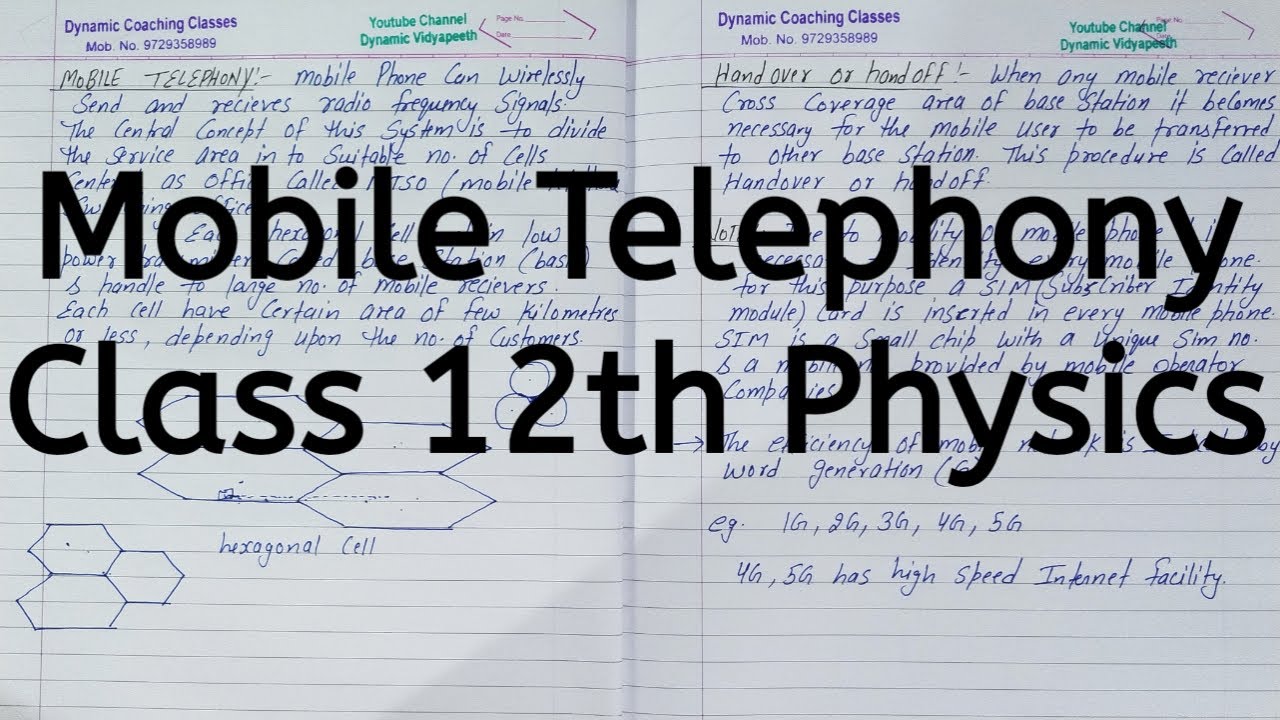 Dynamic Coaching Classes
Mob. No. 9729358989
Youtube Channel
Dynamic Vidyapeeth
Page No.
Date
MOBILE TELEPHONY:- Mobile Phone Can Wirelessly
Send and recieves radio frequency Signals.
The Central Concept of this System is to divide
the Service area in to Suitable no. of Cells
as Called (mobile
Each hexagonal Cell low
power
& handle to large no. of mobile recievers.
Each cell have Certain area of few Kilometres
or less, depending upon the no. of Customers.
hexagonal Cell
Dynamic Coaching Classes
Mob. No. 9729358989
Youtube Channel
Dynamic Vidyapeeth
Page No.
Date
Hand over or handoff:- When any mobile reciever
Cross Coverage area of base Station it becomes
necessary for the mobile user to be transferred
to other base station. This procedure is Called
Handover or handoff.
to of mobile phone
Identify every mobile phone.
for this purpose a SIM (Subscriber Identity
module) Card is inserted in every mobile phone.
SIM is a Small chip with a Unique Sim no.
& a mobile no. provided by mobile operator
Companies
→ The efficiency of is by
word generation (G)
eg. 1G, 2G, 3G, 4G, 5G
4G, 5G has high speed Internet facility.
Mobile Telephony
Class 12th Physics